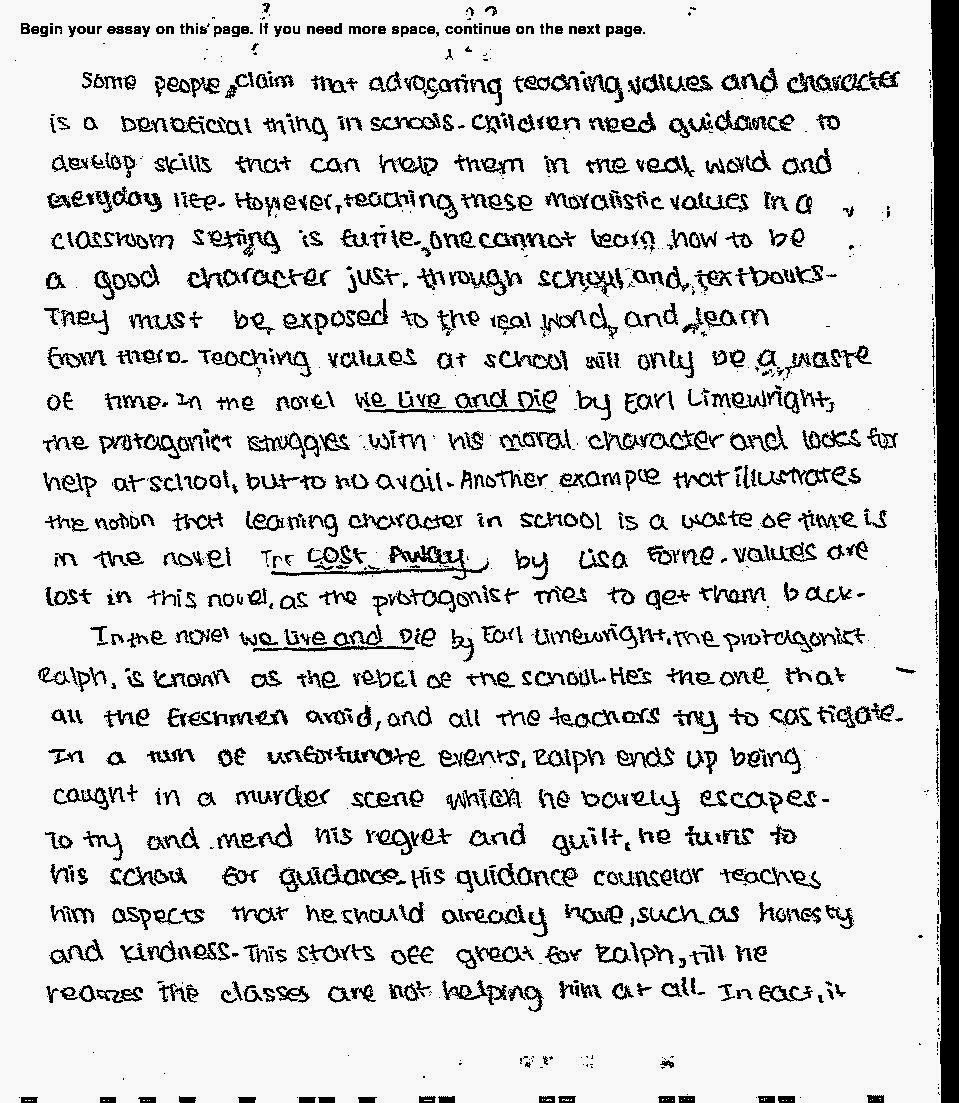 Begin your essay on this page. If you need more space, continue on the next page.
Some people claim that advocating teaching values and character
is a beneficial thing in schools. Children need guidance to
develop skills that can help them in the real world and
everyday life. However, teaching these moralistic values in a
classroom setting is futile. One cannot learn how to be
a good character just through school and textbooks.
They must be exposed to the real world, and learn
from there. Teaching values at school will only be a waste
of time. In the novel We Live and Die by Earl Limewright,
the protagonict struggles with his moral character and looks for
help at school, but to no avail. Another example that illustrates
the notion that learning character in school is a waste of time is
in the novel The Cost Away by Lisa Forne. Values are
lost in this novel, as the protagonist tries to get them back.
In the novel We Live and Die by Earl Limewright, the protagonict
Ralph, is known as the rebel of the school. He's the one that
all the freshmen avoid, and all the teachers try to castigate.
In a turn of unfortunate events, Ralph ends up being
caught in a murder scene which he barely escapes.
To try and mend his regret and guilt, he turns to
his school for guidance. His guidance counselor teaches
him aspects that he should already have, such as honesty
and kindness. This starts off great for Ralph, till he
realizes the classes are not helping him at all. In fact, it